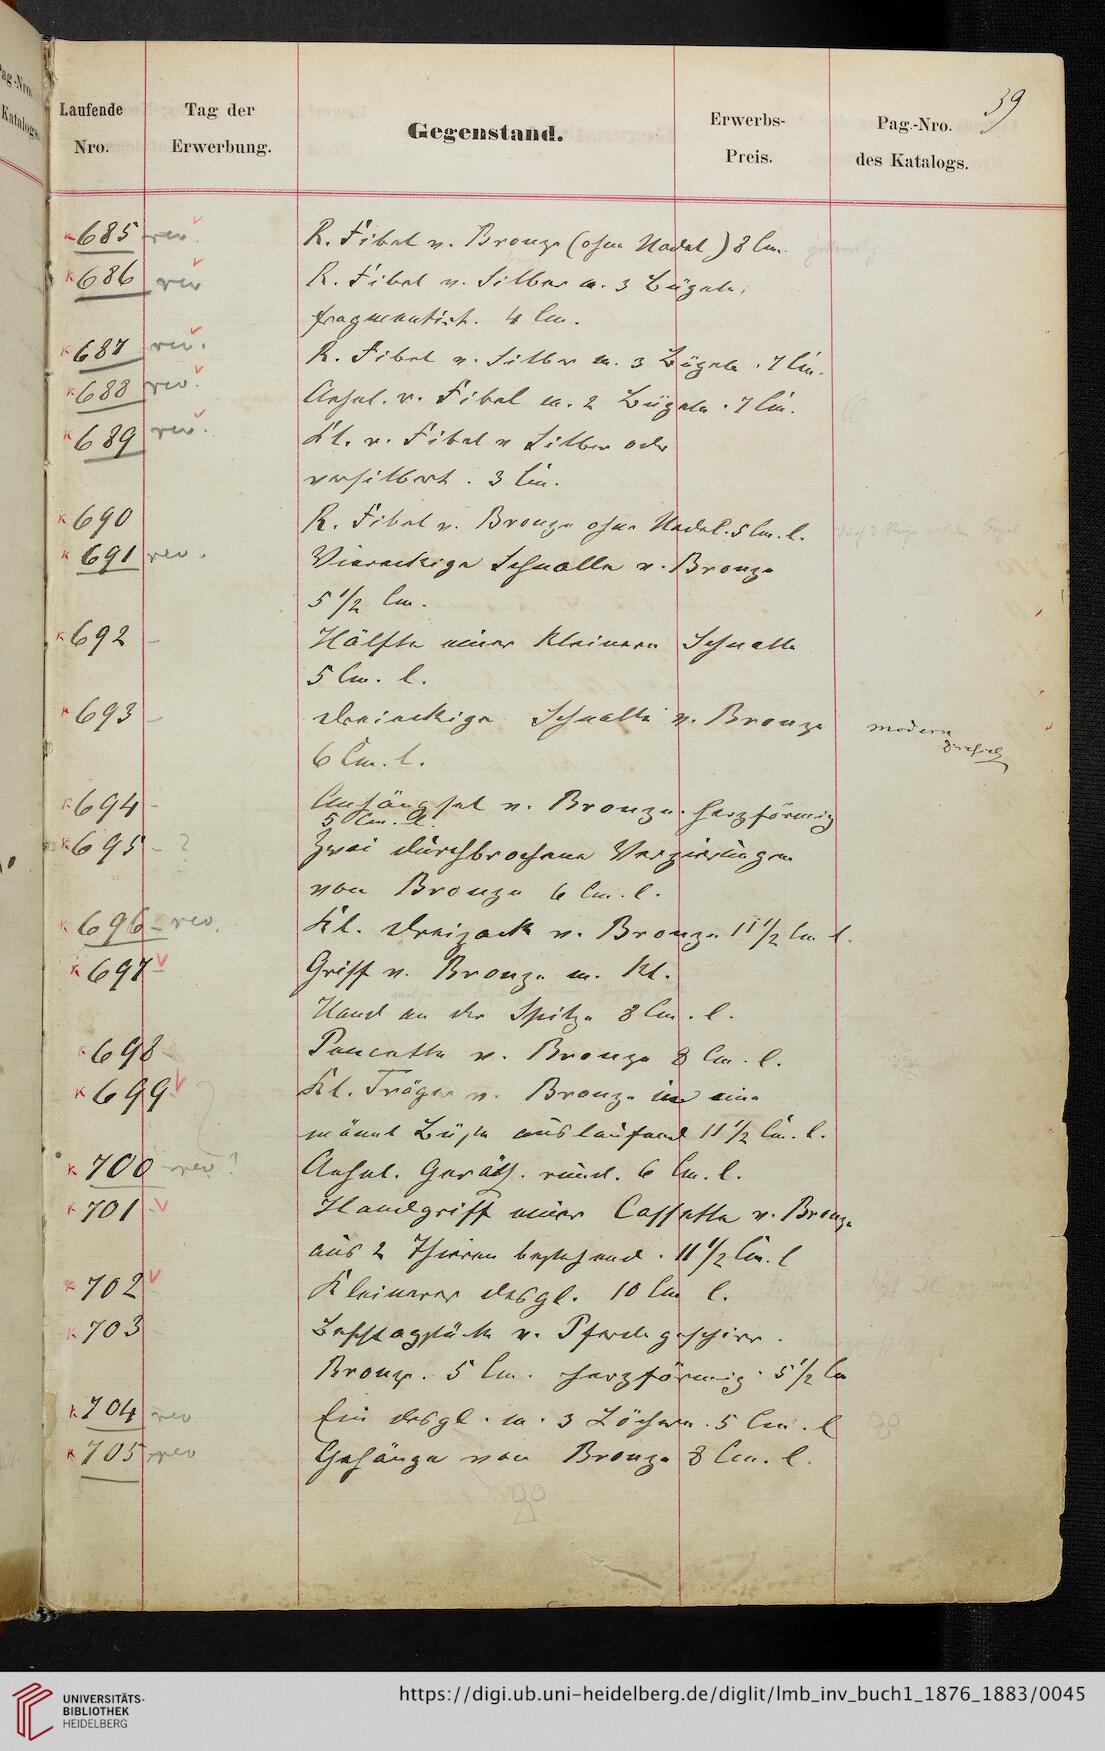 Pag.-Nro.
Katalogs.
39
Laufende
Nro.
Tag der
Erwerbung.
Gegenstand.
Erwerbs-
Preis.
Pag.-Nro.
des Katalogs.
K 685 rev. R. Fibel v. Bronze (ohne Nadel) 8 Cm.
K 686 rev R. Fibel v. Silber m. 3 Bügeln,
fragmentirt. 4 Cm.
K 687 rev. R. Fibel v. Silber m. 3 Bügeln. 7 Cm.
K 688 rev. Aehnl. r. Fibel m. 2 Bügeln. 7 Cm.
K 689 rev. Kl. r. Fibel v Silber oder
versilbert. 3 Cm.
K 690 R. Fibel v. Bronze ohne Nadel. 5 Cm. l.
K 691 rev. Viereckige Schnalle v. Bronze
5 1/2 Cm.
K 692 – Hälfte einer kleinern Schnalle
5 Cm. l.
K 693 – Dreieckige Schnalle v. Bronze modern
6 Cm. l.
K 694 – Anhängsel v. Bronze. herzförmig
5 Cm. l.
K 695 – ? Zwei durchbrochene Verzierungen
von Bronze 6 Cm. l.
K 696 – rev. Kl. Dreizack v. Bronze 11 1/2 Cm l.
K 697 Griff v. Bronze m. kl.
Hand an der Spitze 8 Cm. l.
K 698 – Pincette v. Bronze 8 Cm. l.
K 699 Kl. Träger v. Bronze in eine
männl Büste auslaufend 11 1/2 Cm. l.
K 700 – rev ? Aehnl. Geräth. rund. 6 Cm. l.
K 701 – Handgriff einer Cassette v. Bronze
aus 2 Thieren bestehend. 11 1/2 Cm. l
K 702 Kleinerer desgl. 10 Cm l.
K 703 – Beschlagstück v. Pferdegeschirr.
Bronze. 5 Cm. herzförmig. 5 1/2 Cm
K 704 rev Ein desgl. m. 3 Löchern. 5 Cm. l
K 705 rev Gehänge von Bronze 8 Cm. l.
UNIVERSITÄTS-
BIBLIOTHEK
HEIDELBERG
https://digi.ub.uni-heidelberg.de/diglit/lmb_inv_buch1_1876_1883/0045